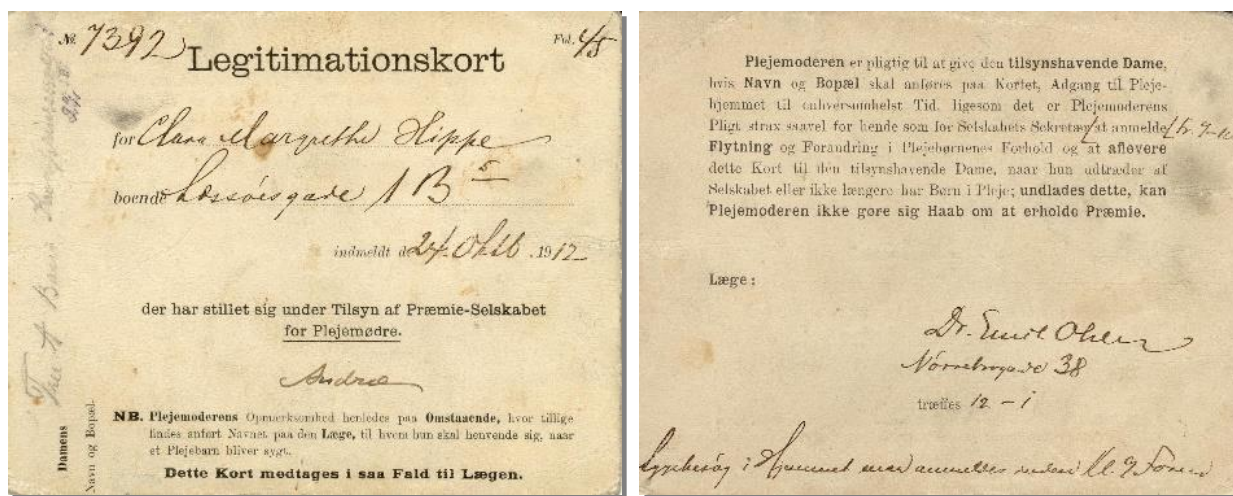 № 7392
Fol. 45
Legitimationskort
for Clara Margrethe Hippe
boende Læssøesgade 1 B 5
indmeldt d. 24. Oktb. 1912
der har stillet sig under Tilsyn af Præmie-Selskabet
for Plejemødre.
Andræ
NB. Plejemoderens Opmærksomhed henledes paa Omstaaende, hvor tillige
findes anført Navnet paa den Læge, til hvem hun skal henvende sig, naar
et Plejebarn bliver sygt.
Dette Kort medtages i saa Fald til Lægen.
Damens
Navn og Bopæl.
Plejemoderen er pligtig til at give den tilsynshavende Dame,
hvis Navn og Bopæl skal anføres paa Kortet, Adgang til Pleje-
hjemmet til enhversomhelst Tid, ligesom det er Plejemoderens
Pligt strax saavel for hende som for Selskabets Sekretær at anmelde
Flytning og Forandring i Plejebørnenes Forhold og at aflevere
dette Kort til den tilsynshavende Dame, naar hun udtræder af
Selskabet eller ikke længere har Børn i Pleje; undlades dette, kan
Plejemoderen ikke gøre sig Haab om at erholde Præmie.
Læge:
Dr. Emil Ohlen
Nørrebrogade 38
træffes 12 - 1
Sygebesøg i Hjemmet maa anmeldes inden Kl. 9 Form